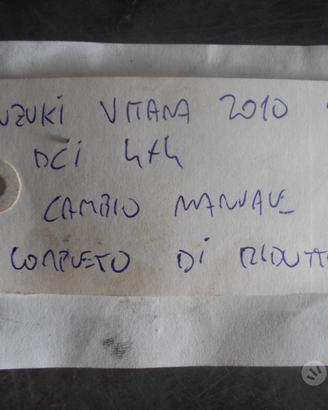 UZUKI VITARA 2010
DCI 4x4
CAMBIO MANUALE
COMPLETO DI RIDUTT